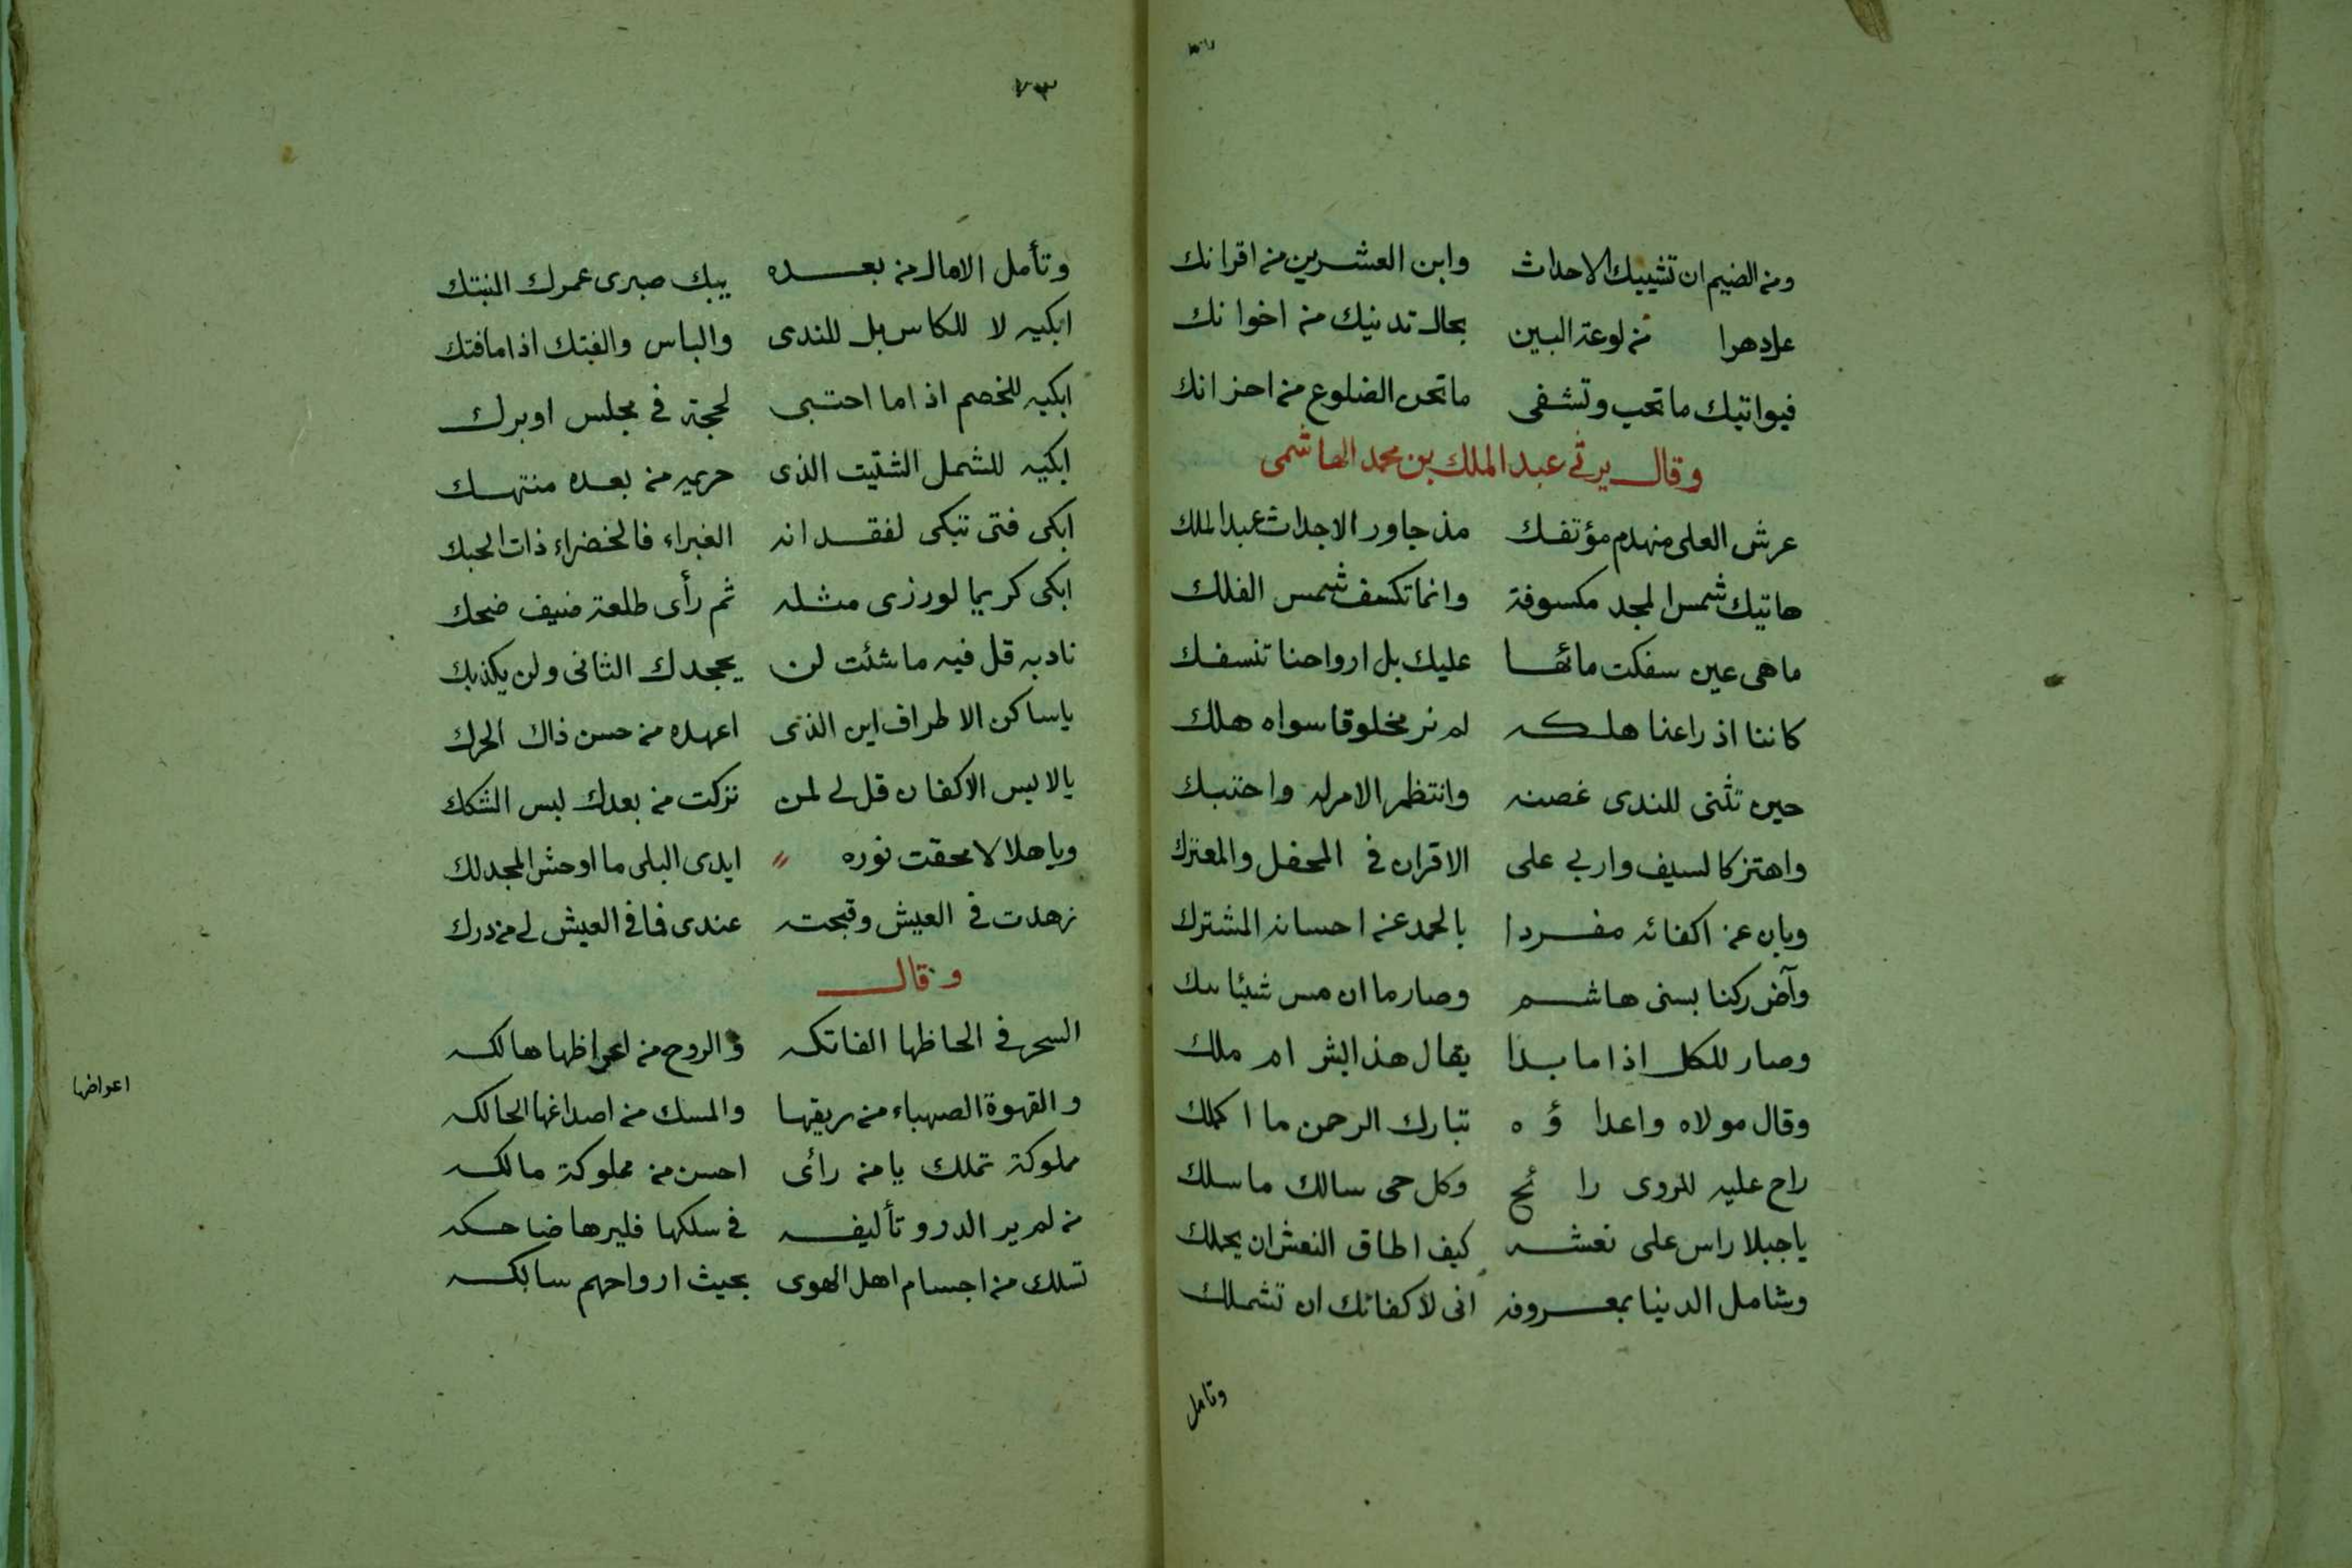 ومن الضيم ان تشيبك الاحداث وابن العشرين من اقرانك
عل دهرا من لوعة البين بحال تدنيك من اخوانك
فيواتيك ما تحب وتشفى ما تحن الضلوع من احزانك
وقال يرثى عبد الملك بن محمد الهاشمى
عرش العلى منهدم مؤتفك مذ جاور الاجداث عبد الملك
هاتيك شمس المجد مكسوفة وانما تكسف شمس الفلك
ما هى عين سفكت مائها عليك بل ارواحنا تنسفك
كاننا اذ راعنا هلكه لم نر مخلوقا سواه هلك
حين تثنى للندى غصنه وانتظم الامر له واحتبك
واهتز كالسيف واربى على الاقران فى المحفل والمعترك
وبان عن اكفائه مفردا بالحمد عن احسانه المشترك
وآض ركنا بسنى هاشم وصارما ان مس شيئا بتك
وصار للكل اذا ما بدا يقال هذا بشر ام ملك
وقال مولاه واعداؤه تبارك الرحمن ما اكملك
راح عليه للردى رائح وكل حى سالك ما سلك
ياجبلا راس على نعشه كيف اطاق النعش ان يحملك
وشامل الدنيا بمعروفه انى لاكفانك ان تشملك
وتامل
٧٣
وتأمل الامال من بعده يبك صبرى عمرك المنبتك
ابكيه لا للكاس بل للندى والباس والفتك اذا ما فتك
ابكيه للخصم اذا ما احتبى لحجة فى مجلس او برك
ابكيه للشمل الشتيت الذى حريمه من بعده منتهك
ابكى فتى تبكى لفقدانه الغبراء فالخضراء ذات الحبك
ابكى كريما لو رزى مثله ثم رأى طلعة ضيف ضحك
نادبه قل فيه ما شئت لن يجحدك الثانى ولن يكذبك
ياساكن الاطراف اين الذى اعهده من حسن ذاك الحرك
يالابس الاكفان قل لى لمن تركت من بعدك لبس الشكك
وياهلالا محقت نوره ايدى البلى ما اوحش المجد لك
زهدت فى العيش وقبحته عندى فما فى العيش لى من درك
وقال
السحر فى الحاظها الفاتكه والروح من اعراظها هالكه
اعراضها
والقهوة الصهباء من ريقها والمسك من اصداغها الحالكه
مملوكة تملك يا من رائى احسن من مملوكة مالكه
من لم ير الدر وتأليفه فى سلكها فليرها ضاحكه
تسلك من اجسام اهل الهوى بحيث ارواحهم سالكه